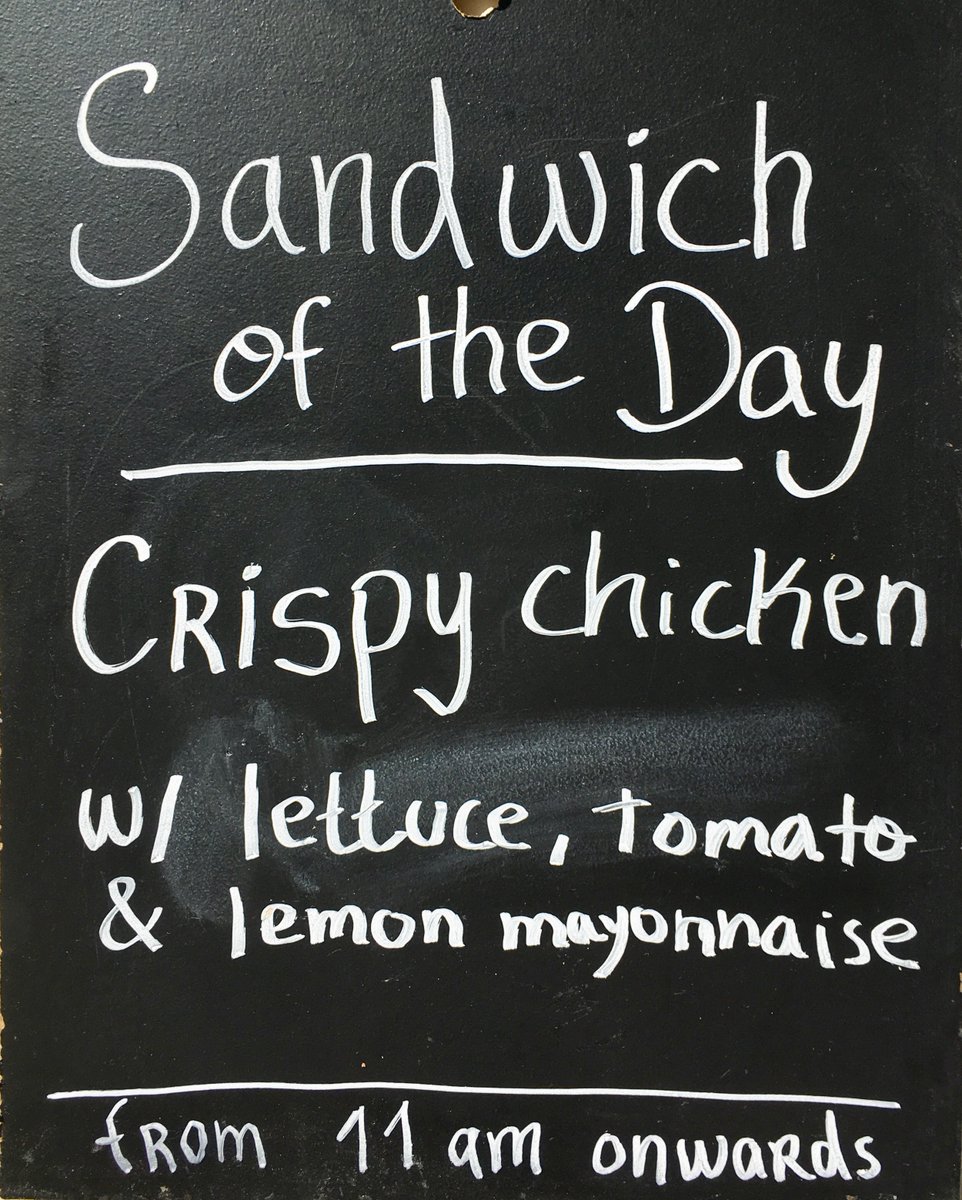 Sandwich
of the Day
Crispy chicken
w/ lettuce, tomato
& lemon mayonnaise
from 11 am onwards